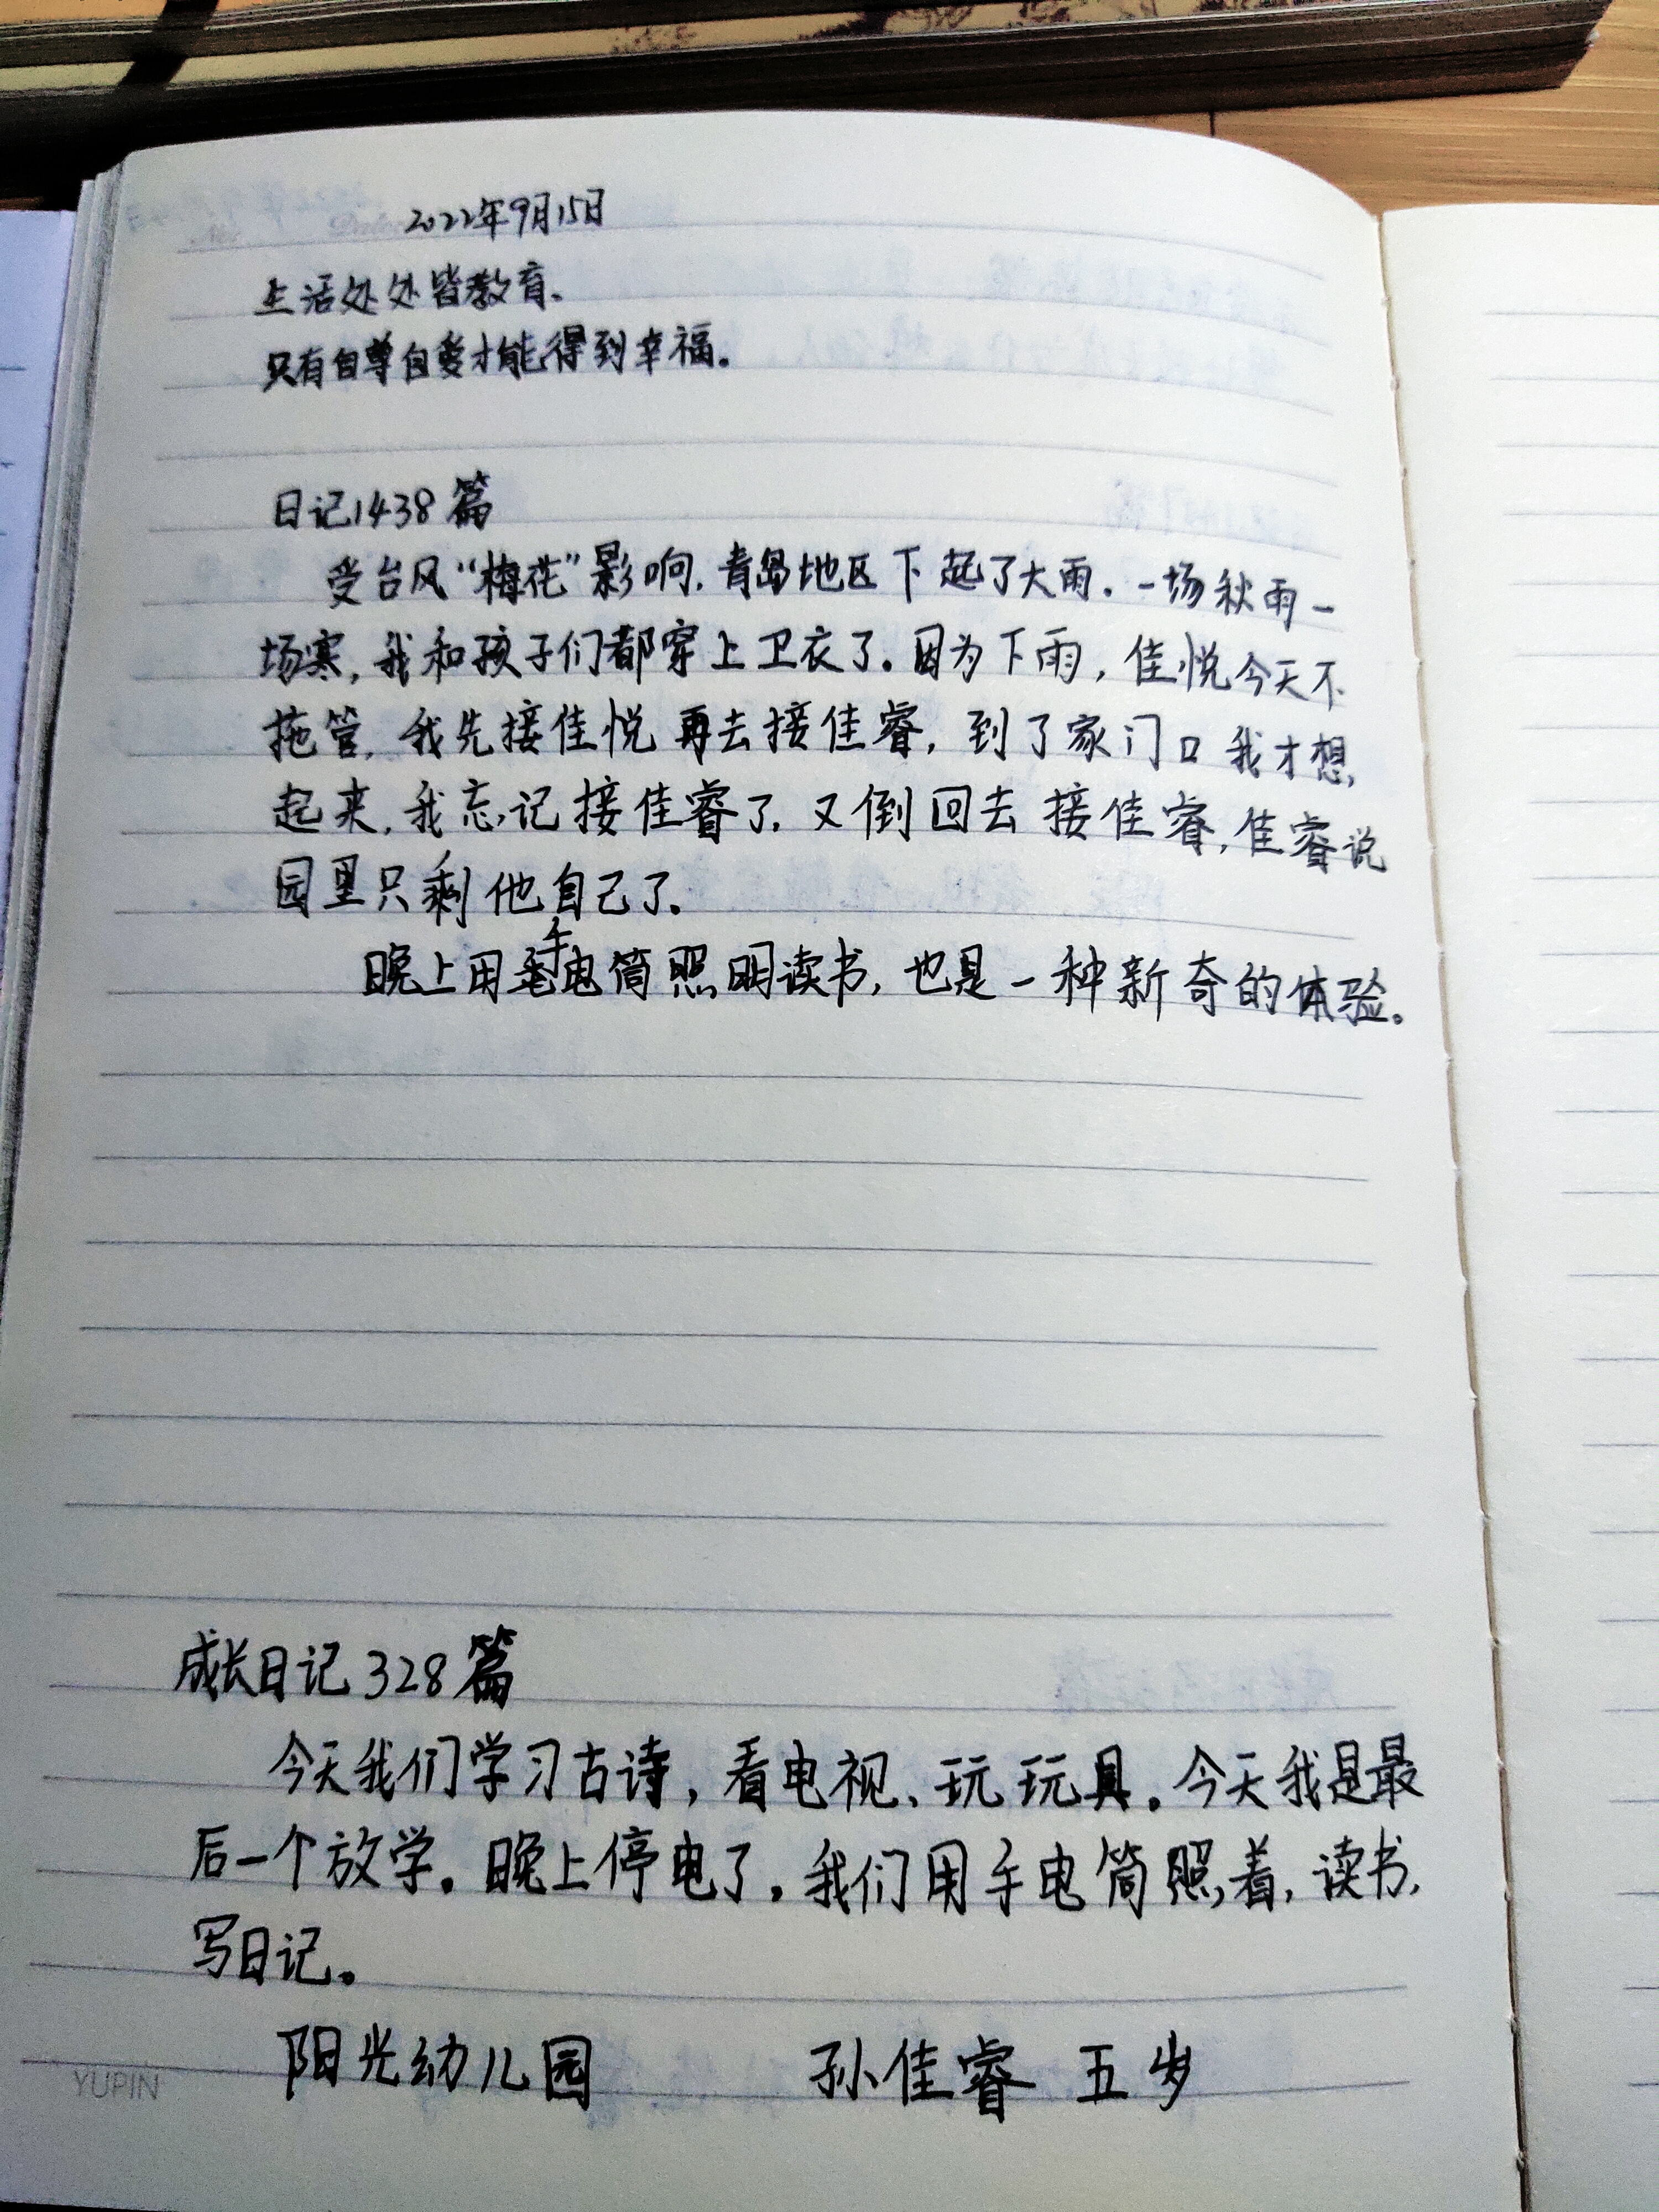 2022年9月15日
生活处处皆教育、
只有自尊自爱才能得到幸福。
日记1438篇
受台风“梅花”影响,青岛地区下起了大雨。一场秋雨一
场寒,我和孩子们都穿上卫衣了。因为下雨,佳悦今天不
拖管,我先接佳悦再去接佳睿,到了家门口我才想
起来,我忘记接佳睿了,又倒回去接佳睿,佳睿说
园里只剩他自己了。
晚上用手电筒照明读书,也是一种新奇的体验。
成长日记328篇
今天我们学习古诗,看电视、玩玩具。今天我是最
后一个放学。晚上停电了。我们用手电筒照着,读书,
写日记。
阳光幼儿园 孙佳睿 五岁
YUPIN